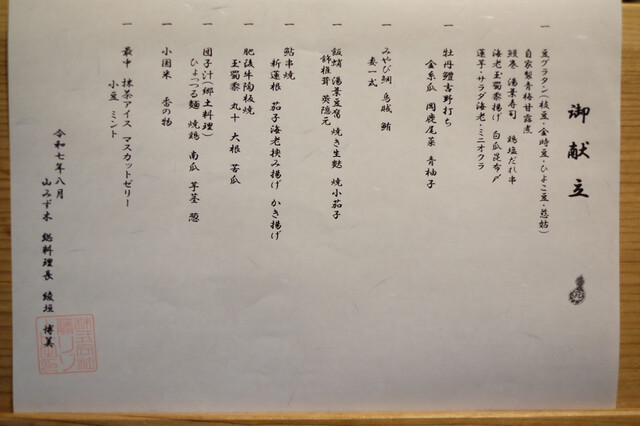 御献立
一 豆グラタン(枝豆・金時豆・ひよこ豆・慈姑)
自家製青梅甘露煮
鰻巻 湯葉寿司 鶏塩だれ串
海老玉蜀黍揚げ 白瓜昆布〆
蓮芋・サラダ海老・ミニオクラ
一 牡丹鱧吉野打ち
金糸瓜 岡鹿尾菜 青柚子
一 みやび鯛 烏賊 鮪
妻一式
一 飯蛸 湯葉豆腐 焼き生麩 焼小茄子
餅椎茸 英隠元
一 鮎串焼
新蓮根 茄子海老挟み揚げ かき揚げ
一 肥後牛陶板焼
玉蜀黍 丸十 大根 苦瓜
一 団子汁(郷土料理)
ひょつる麺 焼鶏 南瓜 芋茎 葱
一 小国米 香の物
一 最中 抹茶アイス マスカットゼリー
小豆 ミント
令和七年八月
山みず木 総料理長 綾垣 博美